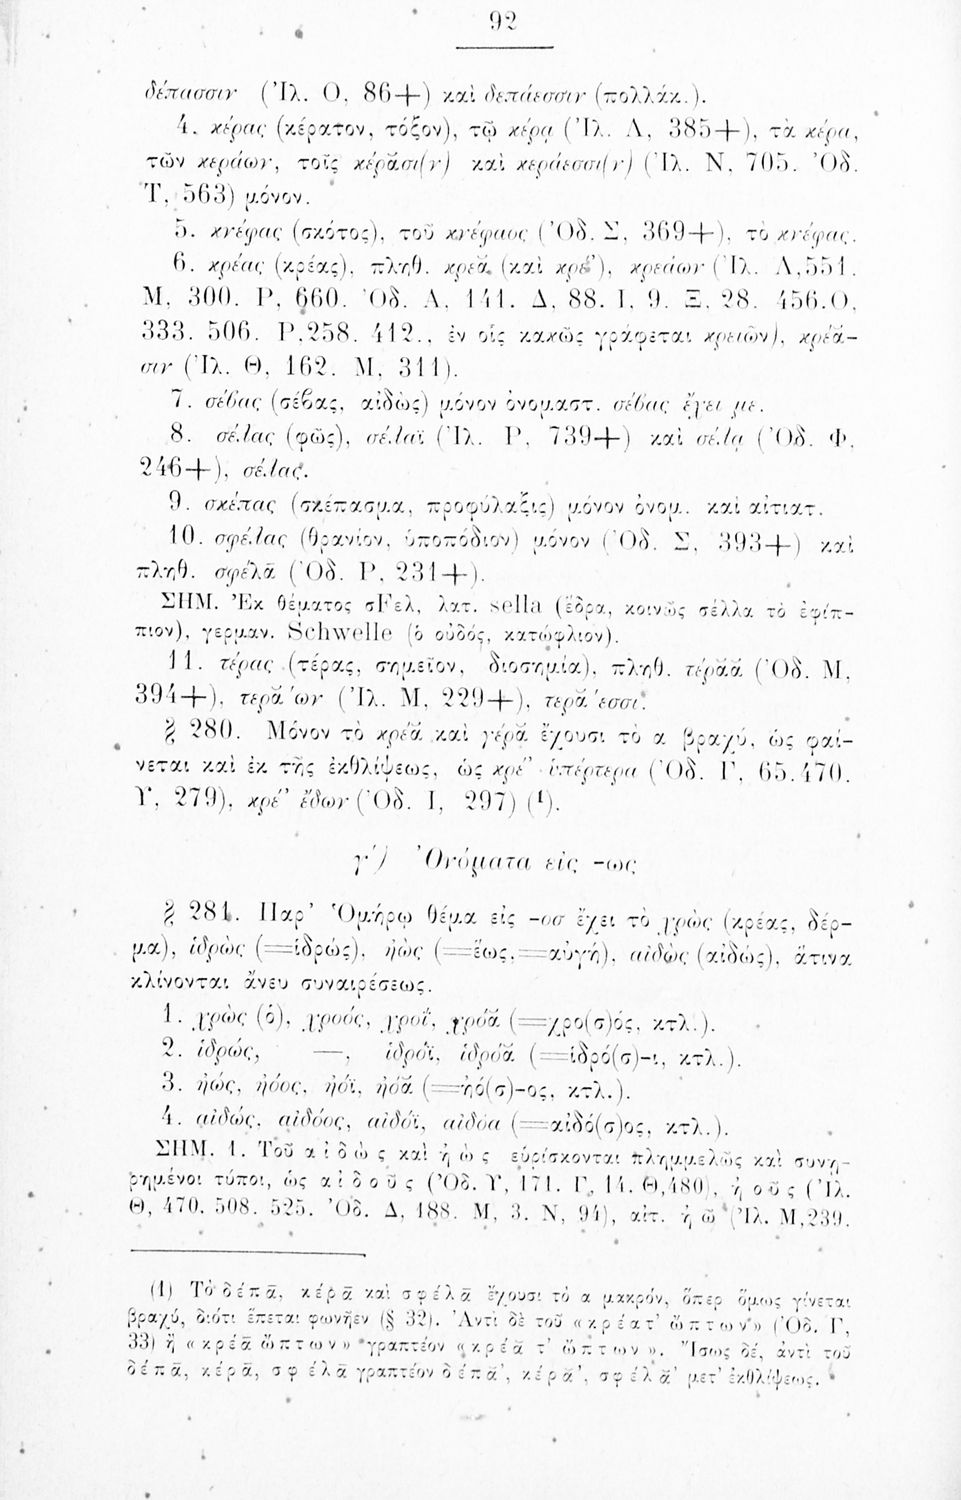 92
δέπασσιν (Ἰλ. Ο, 86+) καὶ δεπάεσσιν (πολλάκ.).
4. κέρας (κέρατον, τόξον), τῷ κέρᾳ (Ἰλ. Λ, 385+), τὰ κέρα,
τῶν κεράων, τοῖς κέρᾱσι(ν) καὶ κεράεσσι(ν) (Ἰλ. Ν, 705. Ὀδ.
Τ, 563) μόνον.
5. κνέφας (σκότος), τοῦ κνέφαος (Ὀδ. Σ, 369+), τὸ κνέφας.
6. κρέας (κρέας), πληθ. κρέᾰ (καὶ κρέ’), κρεάων (Ἰλ. Λ,551.
Μ, 300. Ρ, 660. Ὀδ. Α, 141. Δ, 88. Ι, 9. Ξ, 28. 456.Ο,
333. 506. Ρ,258. 412., ἐν οἷς κακῶς γράφεται κρειῶν), κρέᾰ-
σιν (Ἰλ. Θ, 162. Μ, 311).
7. σέβας (σέβας, αἰδὼς) μόνον ὀνομαστ. σέβας ἔχει με.
8. σέλας (φῶς), σέλαϊ (Ἰλ. Ρ, 739+) καὶ σέλᾳ (Ὀδ. Φ,
246+), σέλας.
9. σκέπας (σκέπασμα, προφύλαξις) μόνον ὀνομ. καὶ αἰτιατ.
10. σφέλας (θρανίον, ὑποπόδιον) μόνον (Ὀδ. Σ, 393+) καὶ
πληθ. σφέλᾱ (Ὀδ. Ρ, 231+).
ΣΗΜ. Ἐκ θέματος σFελ, λατ. sella (ἕδρα, κοινῶς σέλλα τὸ ἐφίπ-
πιον), γερμαν. Schwelle (ὁ οὐδός, κατώφλιον).
11. τέρας (τέρας, σημεῖον, διοσημία), πληθ. τέρᾰᾰ (Ὀδ. Μ,
394+), τερᾰ́ων (Ἰλ. Μ, 229+), τερᾰ́εσσι.
§ 280. Μόνον τὸ κρέᾰ καὶ γέρᾰ ἔχουσι τὸ α βραχύ, ὡς φαί-
νεται καὶ ἐκ τῆς ἐκθλίψεως, ὡς κρέ’ ὑπέρτερα (Ὀδ. Γ, 65.470.
Υ, 279), κρέ’ ἔδων (Ὀδ. Ι, 297) (¹).
γ΄) Ὀνόματα εἰς -ως
§ 281. Παρ’ Ὁμήρῳ θέμα εἰς -οσ ἔχει τὸ χρὼς (κρέας, δέρ-
μα), ἱδρὼς (=ἱδρώς), ἠὼς (=ἕως,=αὐγή), αἰδὼς (αἰδώς), ἅτινα
κλίνονται ἄνευ συναιρέσεως.
1. χρὼς (ὁ), χροός, χροΐ, χρόᾰ (=χρο(σ)ός, κτλ.).
2. ἱδρώς, —, ἱδρόϊ, ἱδρόᾰ (=ἱδρό(σ)-ι, κτλ.).
3. ἠώς, ἠόος, ἠόϊ, ἠόᾰ (=ἠό(σ)-ος, κτλ.).
4. αἰδώς, αἰδόος, αἰδόϊ, αἰδόα (=αἰδό(σ)ος, κτλ.).
ΣΗΜ. 1. Τοῦ αἰδὼς καὶ ἠὼς εὑρίσκονται πλημμελῶς καὶ συνῃ-
ρημένοι τύποι, ὡς αἰδοῦς (Ὀδ. Υ, 171. Γ, 14. Θ,480), ἠοῦς (Ἰλ.
Θ, 470. 508. 525. Ὀδ. Δ, 188. Μ, 3. Ν, 94), αἰτ. ἠῶ (Ἰλ. Μ,239.
(1) Τὸ δέπᾱ, κέρᾱ καὶ σφέλᾱ ἔχουσι τὸ α μακρόν, ὅπερ ὅμως γίνεται
βραχύ, διότι ἕπεται φωνῆεν (§ 32). Ἀντὶ δὲ τοῦ «κρέατ’ ὤπτων» (Ὀδ. Γ,
33) ἢ «κρέᾰ ὤπτων» γραπτέον «κρέᾰ τ’ ὤπτων». Ἴσως δέ, ἀντὶ τοῦ
δέπᾱ, κέρᾱ, σφέλᾱ γραπτέον δέπᾰ’, κέρᾰ’, σφέλᾰ’ μετ’ ἐκθλίψεως.